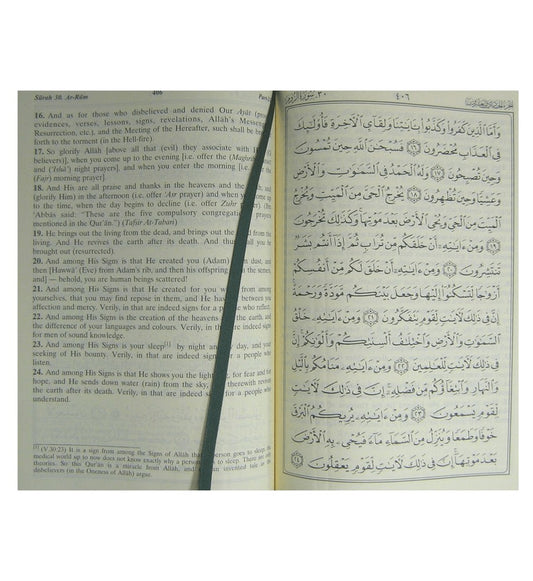 406
Sûrah 30. Ar-Rûm
16. And as for those who disbelieved and denied Our Ayât (proofs
evidences, verses, lessons, signs, revelations, Allâh's Messen
Resurrection, etc.), and the Meeting of the Hereafter, such shall be brou
forth to the torment (in the Hell-fire).
17. So glorify Allâh [above all that (evil) they associate with H
believers)], when you come up to the evening [i.e. offer the (Maghrib
and ('Ishâ') night prayers], and when you enter the morning [i.e.
(Fajr) morning prayer].
18. And His are all praise and thanks in the heavens and the
glorify Him) in the afternoon (i.e. offer 'Asr prayer) and when
to the time, when the day begins to decline (i.e. offer Zuhr
'Abbâs said: "These are the five compulsory congregation prayers
mentioned in the Qur'ân.") (Tafsir At-Tabari)
19. He brings out the living from the dead, and brings out the dead from
the living. And He revives the earth after its death. And thus shall you be
brought out (resurrected).
20. And among His Signs is that He created you (Adam) from dust, and
then [Hawwâ' (Eve) from Adam's rib, and then his offspring from the semen,
and] — behold, you are human beings scattered!
21. And among His Signs is that He created for you wives from among
yourselves, that you may find repose in them, and He has put between you
affection and mercy. Verily, in that are indeed signs for a people who reflect.
22. And among His Signs is the creation of the heavens and the earth, and
the difference of your languages and colours. Verily, in that are indeed signs
for men of sound knowledge.
23. And among His Signs is your sleep[1] by night and by day, and your
seeking of His Bounty. Verily, in that are indeed signs for a people who
listen.
24. And among His Signs is that He shows you the lightning, for fear and for
hope, and He sends down water (rain) from the sky, and therewith revives
the earth after its death. Verily, in that are indeed signs for a people who
understand.
[1] (V.30:23) It is a sign from among the Signs of Allâh that a person goes to sleep, the
medical world up to now does not know exactly why a person goes to sleep. There are only
theories. So this Qur'ân is a miracle from Allâh, and not an invented tale as the
disbelievers (in the Oneness of Allâh) argue.
٣٠ سورة الروم
٤٠٦
وَأَمَّا الَّذِينَ كَفَرُوا وَكَذَّبُوا بِآيَاتِنَا وَلِقَاءِ الْآخِرَةِ فَأُولَٰئِكَ
فِي الْعَذَابِ مُحْضَرُونَ ١٦ فَسُبْحَانَ اللَّهِ حِينَ تُمْسُونَ
وَحِينَ تُصْبِحُونَ ١٧ وَلَهُ الْحَمْدُ فِي السَّمَاوَاتِ وَالْأَرْضِ
وَعَشِيًّا وَحِينَ تُظْهِرُونَ ١٨ يُخْرِجُ الْحَيَّ مِنَ الْمَيِّتِ وَيُخْرِجُ
الْمَيِّتَ مِنَ الْحَيِّ وَيُحْيِي الْأَرْضَ بَعْدَ مَوْتِهَا وَكَذَٰلِكَ تُخْرَجُونَ
١٩ وَمِنْ آيَاتِهِ أَنْ خَلَقَكُم مِّن تُرَابٍ ثُمَّ إِذَا أَنتُم بَشَرٌ
تَنتَشِرُونَ ٢٠ وَمِنْ آيَاتِهِ أَنْ خَلَقَ لَكُم مِّنْ أَنفُسِكُمْ
أَزْوَاجًا لِّتَسْكُنُوا إِلَيْهَا وَجَعَلَ بَيْنَكُم مَّوَدَّةً وَرَحْمَةً
إِنَّ فِي ذَٰلِكَ لَآيَاتٍ لِّقَوْمٍ يَتَفَكَّرُونَ ٢١ وَمِنْ آيَاتِهِ خَلْقُ
السَّمَاوَاتِ وَالْأَرْضِ وَاخْتِلَافُ أَلْسِنَتِكُمْ وَأَلْوَانِكُمْ إِنَّ
فِي ذَٰلِكَ لَآيَاتٍ لِّلْعَالِمِينَ ٢٢ وَمِنْ آيَاتِهِ مَنَامُكُم بِاللَّيْلِ
وَالنَّهَارِ وَابْتِغَاؤُكُم مِّن فَضْلِهِ إِنَّ فِي ذَٰلِكَ لَآيَاتٍ
لِّقَوْمٍ يَسْمَعُونَ ٢٣ وَمِنْ آيَاتِهِ يُرِيكُمُ الْبَرْقَ
خَوْفًا وَطَمَعًا وَيُنَزِّلُ مِنَ السَّمَاءِ مَاءً فَيُحْيِي بِهِ الْأَرْضَ
بَعْدَ مَوْتِهَا إِنَّ فِي ذَٰلِكَ لَآيَاتٍ لِّقَوْمٍ يَعْقِلُونَ ٢٤